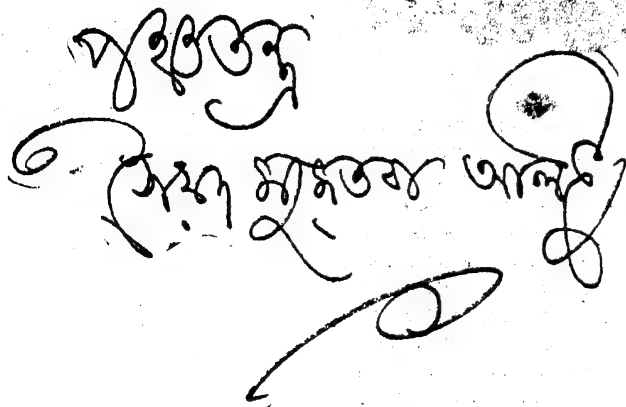 পঞ্চতন্ত্র
সৈয়দ মুজতবা আলী